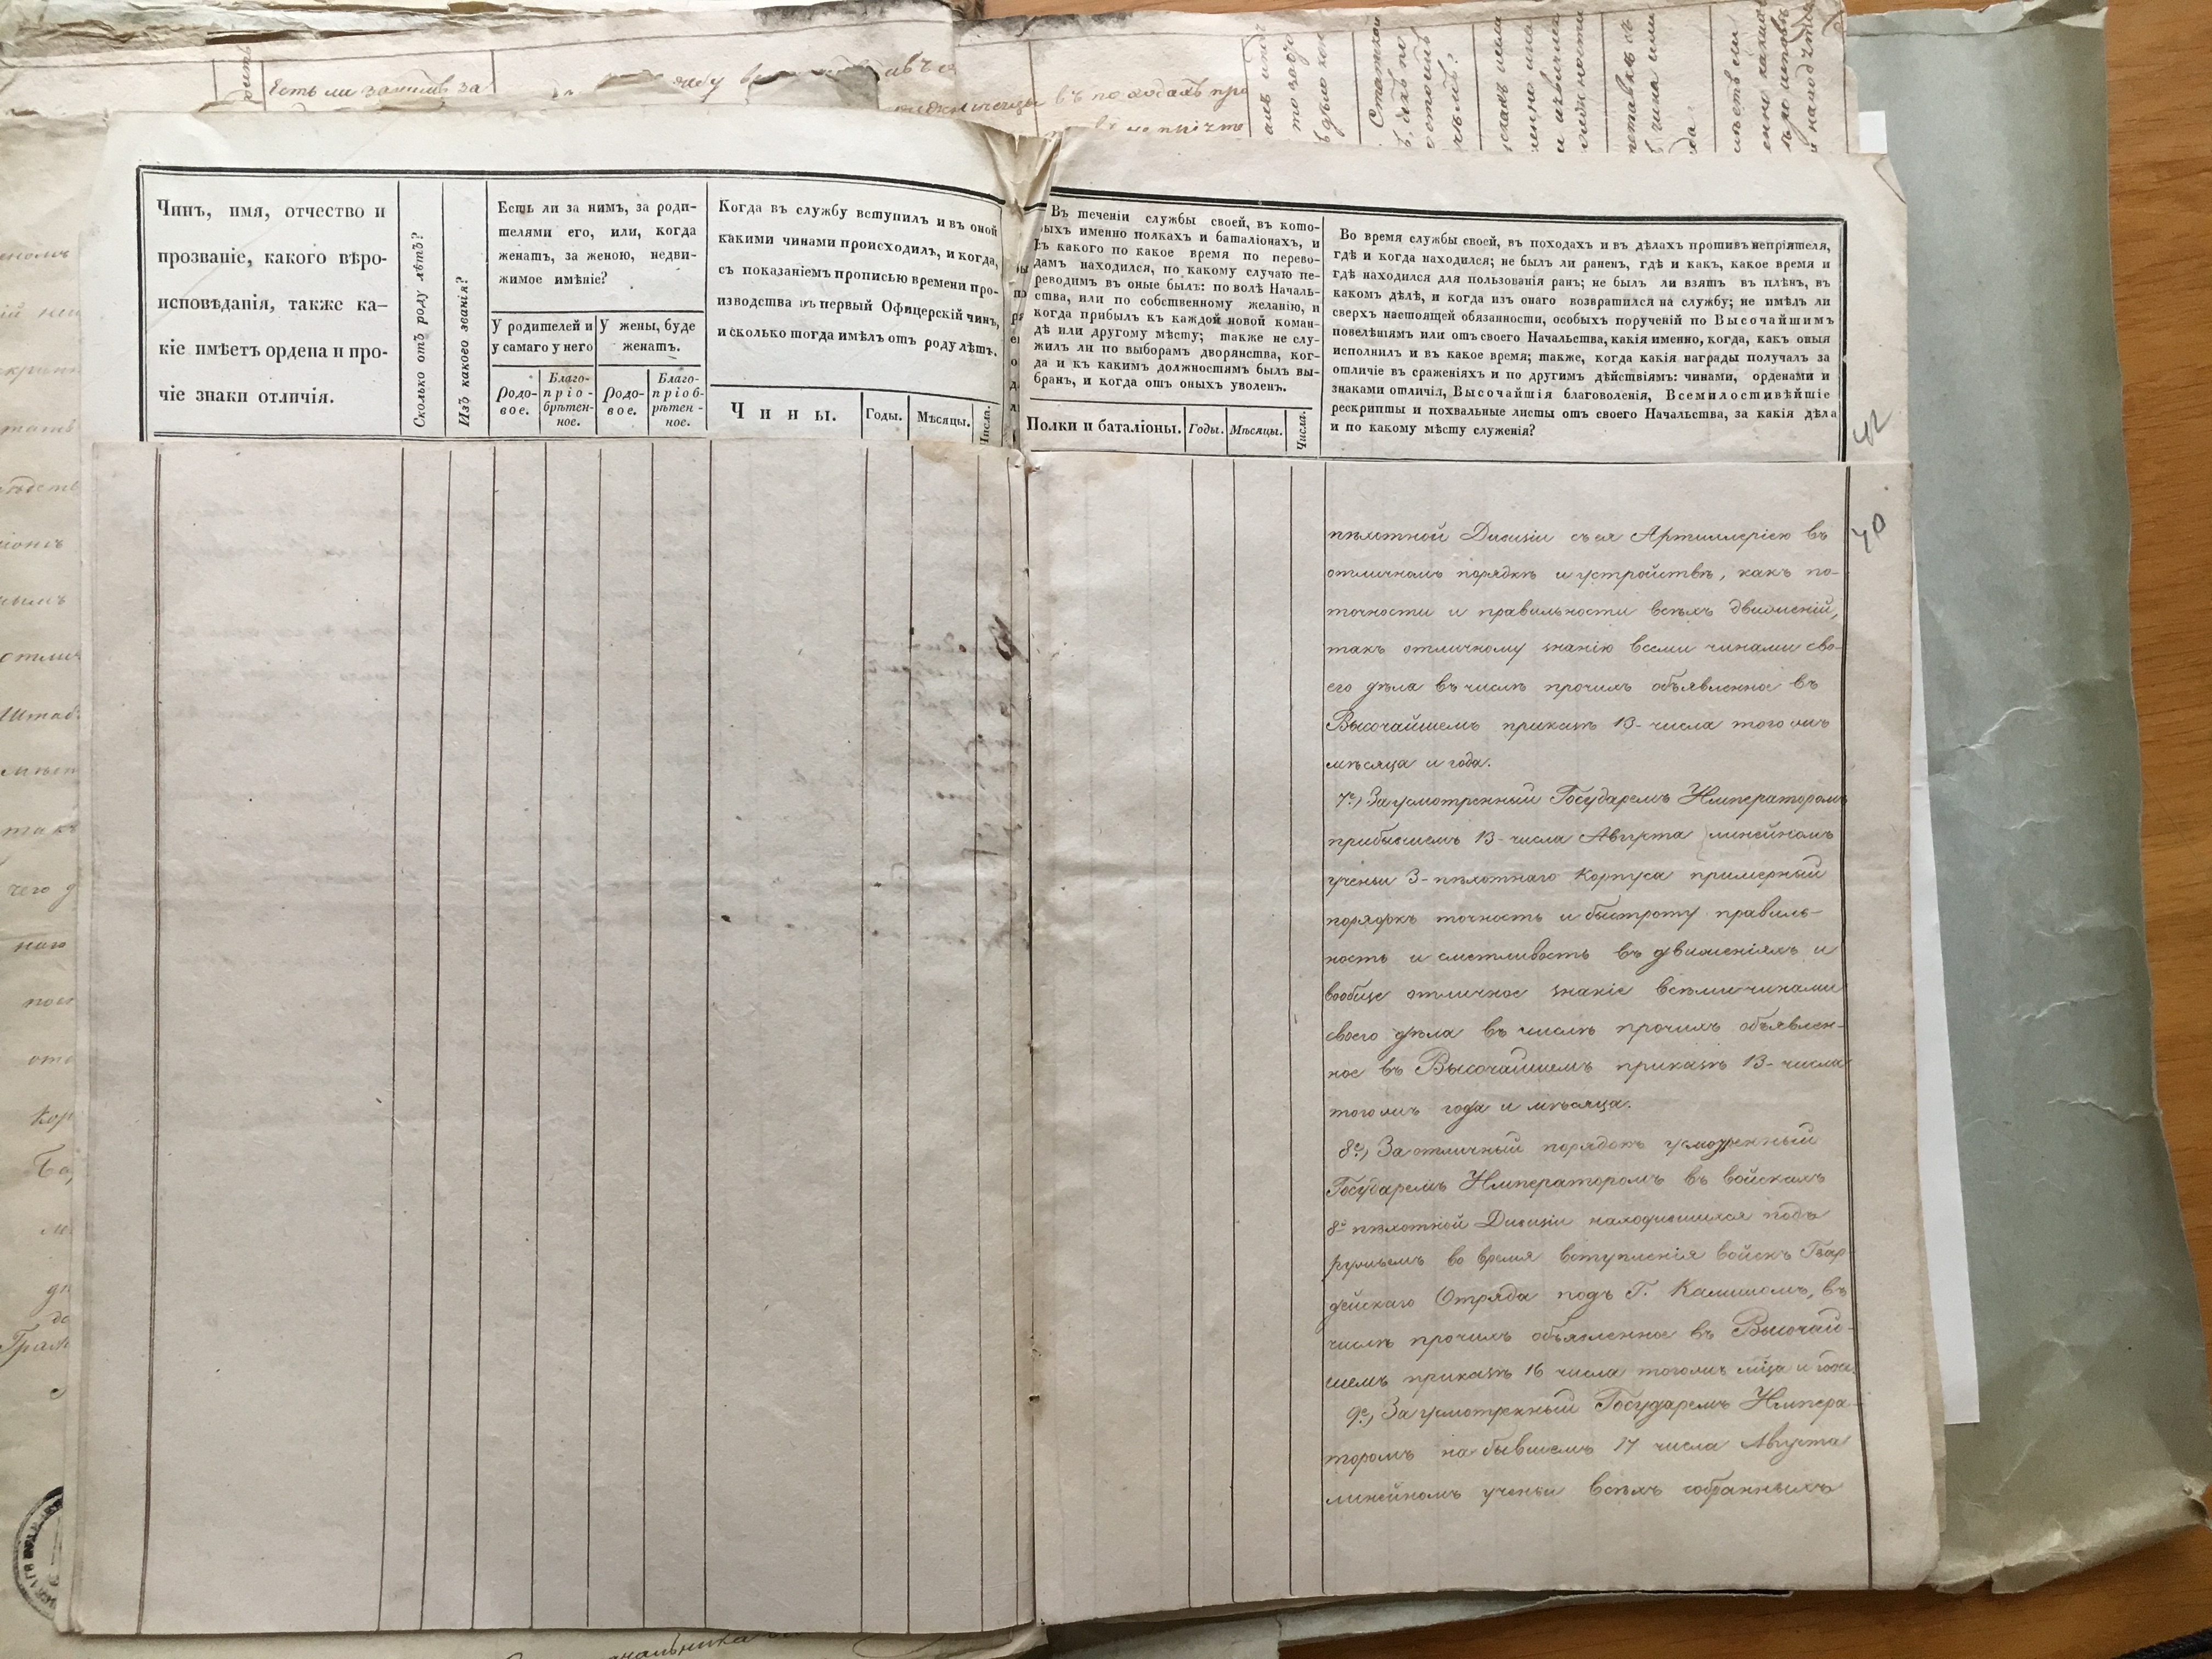 Есть ли за нимъ за
въ походахъ про
Чинъ, имя, отчество и
прозваніе, какого вѣро-
исповѣданія, также ка-
кіе имѣетъ ордена и про-
чіе знаки отличія.
Сколько отъ роду лѣтъ?
Изъ какого званія?
Есть ли за нимъ, за роди-
телями его, или, когда
женатъ, за женою, недви-
жимое имѣніе?
У родителей и
у самаго у него
У жены, буде
женатъ.
Родо-
вое.
Благо-
прiо-
брѣтен-
ное.
Родо-
вое.
Благо-
пріоб-
рѣтен-
ное.
Когда въ службу вступилъ и въ оной
какими чинами происходилъ, и когда,
съ показаніемъ прописью времени про-
изводства въ первый Офицерскій чинъ,
и сколько тогда имѣлъ отъ роду лѣтъ.
Чины.
Годы.
Мѣсяцы.
Числа.
Въ теченіи службы своей, въ кото-
рыхъ именно полкахъ и баталіонахъ, и
съ какого по какое время по перево-
дамъ находился, по какому случаю пе-
реводимъ въ оные былъ: по волѣ Началь-
ства, или по собственному желанію, и
когда прибылъ къ каждой новой коман-
дѣ или другому мѣсту; также не слу-
жилъ ли по выборамъ дворянства, ког-
да и къ какимъ должностямъ былъ вы-
бранъ, и когда отъ оныхъ уволенъ.
Полки и баталіоны.
Годы.
Мѣсяцы.
Числа.
Во время службы своей, въ походахъ и въ дѣлахъ противъ непріятеля,
гдѣ и когда находился; не былъ ли раненъ, гдѣ и какъ, какое время и
гдѣ находился для пользованія ранъ; не былъ ли взятъ въ плѣнъ, въ
какомъ дѣлѣ, и когда изъ онаго возвратился на службу; не имѣлъ ли
сверхъ настоящей обязанности, особыхъ порученій по Высочайшимъ
повелѣніямъ или отъ своего Начальства, какія именно, когда, какъ оныя
исполнилъ и въ какое время; также, когда какія награды получалъ за
отличіе въ сраженіяхъ и по другимъ дѣйствіямъ: чинами, орденами и
знаками отличія, Высочайшія благоволенія, Всемилостивѣйшіе
рескрипты и похвальные листы отъ своего Начальства, за какія дѣла
и по какому мѣсту служенія?
42
40
пѣхотной Дивизіи съ ея Артиллеріею въ
отличномъ порядкѣ и устройствѣ, какъ по-
точности и правильности всѣхъ движеній,
такъ отличному знанію всеми чинами сво-
его дѣла въ числѣ прочимъ объявленное въ
Высочайшемъ приказѣ 13-числа того жъ
мѣсяца и года.
7е) За усмотренный Государемъ Императоромъ
прибывшемъ 13-числа Августа линейномъ
ученьи 3-пѣхотнаго Корпуса примерный
порядокъ точность и быстроту правиль-
ность и сметливость въ движеніяхъ и
вообще отличное знаніе всѣми чинами
своего дѣла въ числѣ прочимъ объявлен-
ное въ Высочайшемъ приказѣ 13-числа
того жъ года и мѣсяца.
8е) За отличный порядокъ усмотренный
Государемъ Императоромъ въ войскахъ
8й пѣхотной Дивизіи находившихся подъ
ружьемъ во время вступленія войскъ Гвар-
дейскаго Отряда подъ Г. Калишомъ, въ
числѣ прочимъ объявленное въ Высочай-
шемъ приказѣ 16 числа того жъ м͠ца и года.
9е) За усмотренный Государемъ Импера-
торомъ на бывшемъ 17 числа Августа
линейномъ ученьи всѣхъ собранныхъ